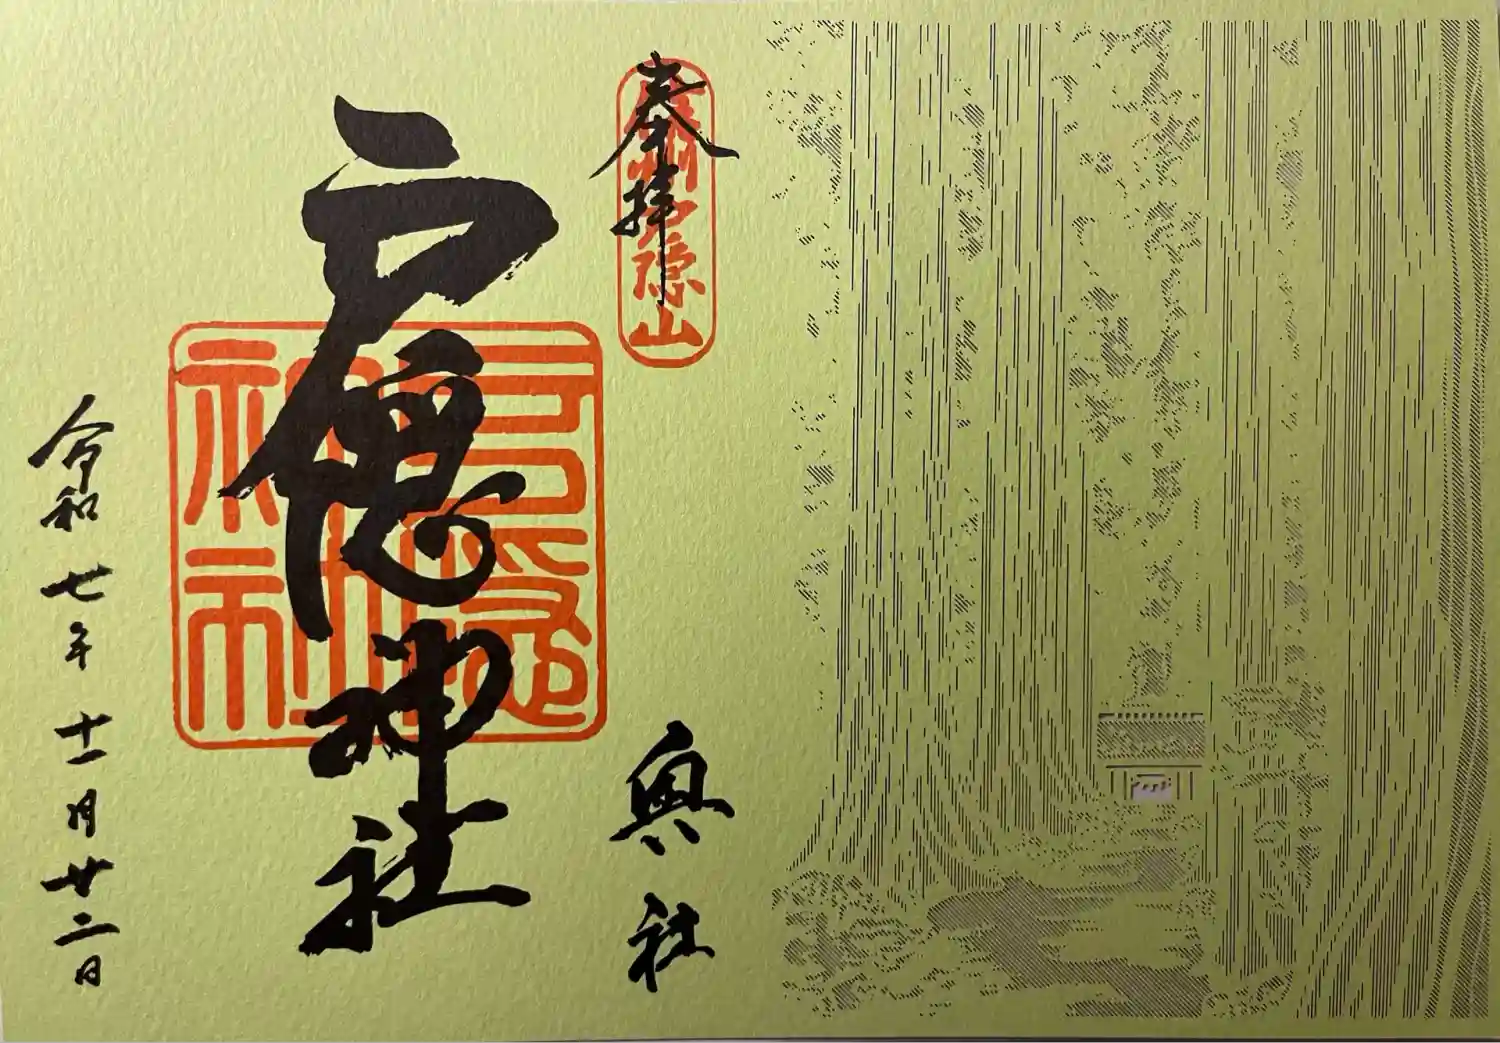 奉拝
信州戸隠山
奥社
戸隠神社
戸隠神社
令和七年十一月廿二日